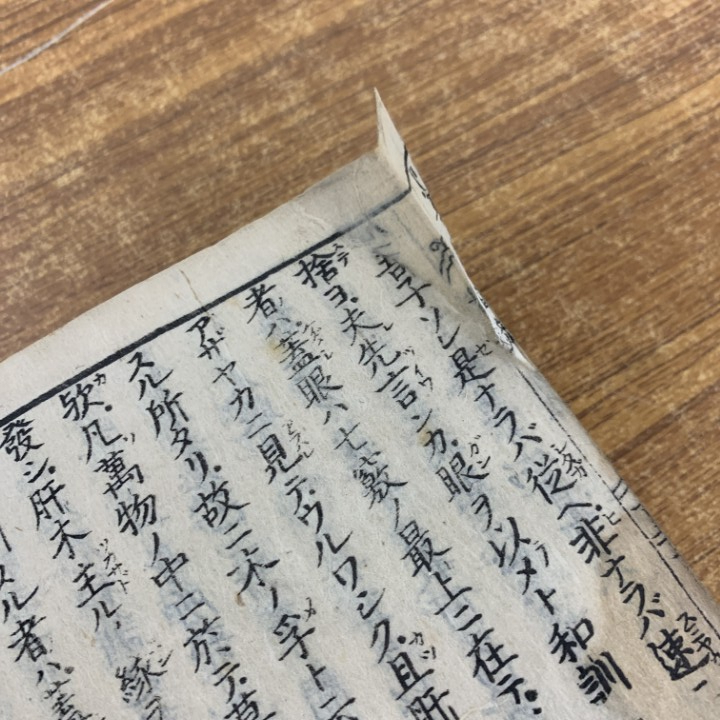 吾子ソレ是ナラバ從ヘ非ナラバ速
捨ヨ.夫先言ンカ.眼ヲ以メト和訓
者ハ.蓋眼ハ七竅ノ最上ニ在テ.
アザヤカニ見テ.ウルワシク.且肝
スル所タリ.故ニ木ノ孚ト
欤.凡萬物ノ中ニ於テ.草
發シ.肝木主ル.緑
スル者ハ.蓋